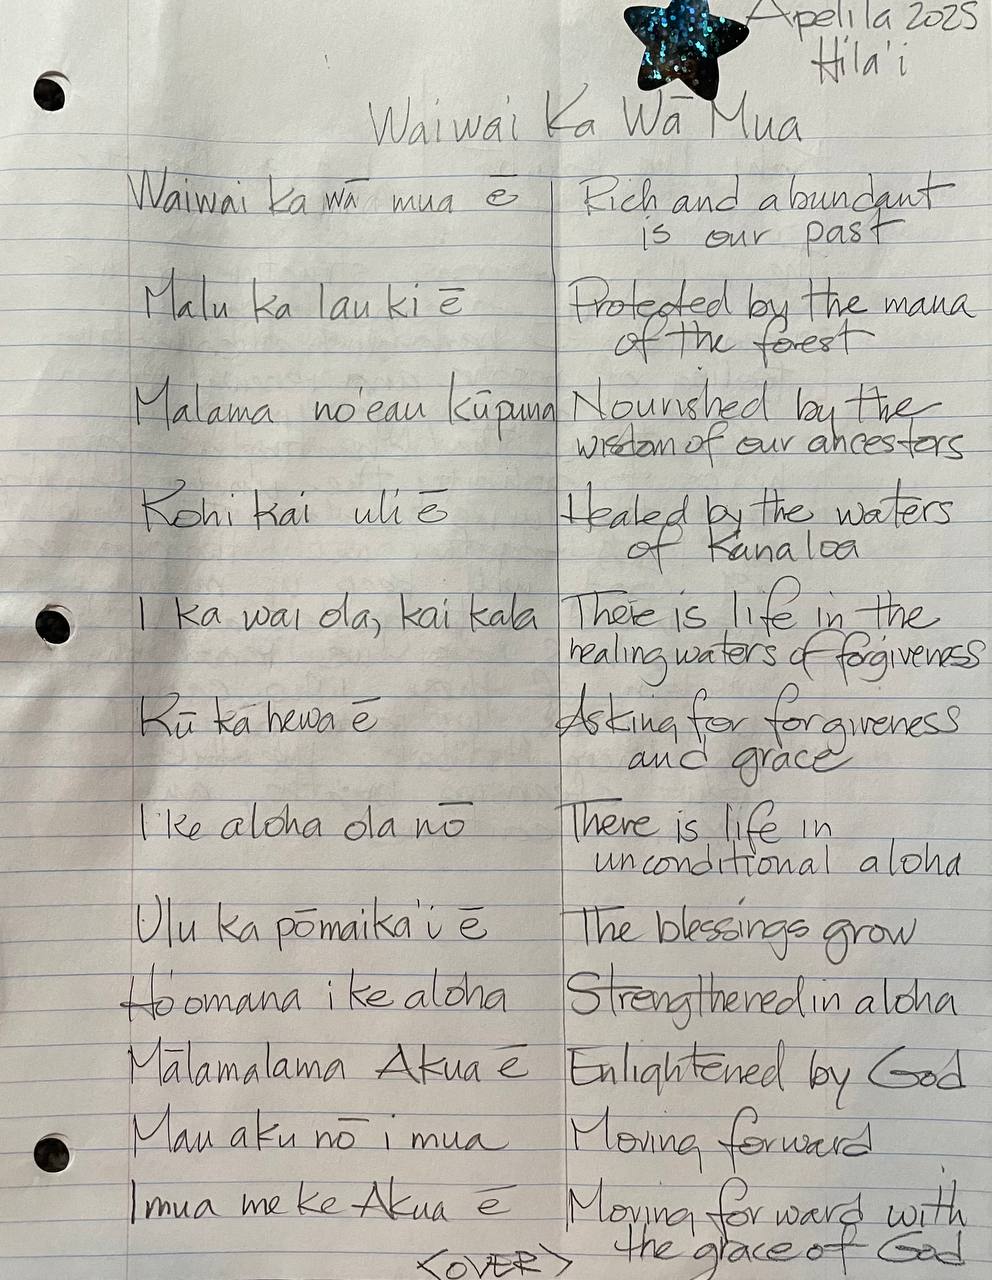 Apelila 2025
Hila'i
Waiwai Ka Wā Mua
Waiwai ka wā mua ē
Rich and abundant
is our past
Malu ka lau ki ē
Protected by the mana
of the forest
Malama no'eau kūpuna
Nourished by the
wisdom of our ancestors
Kohi kai uli ē
Healed by the waters
of Kanaloa
I ka wai ola, kai kala
There is life in the
healing waters of forgiveness
Kū ka hewa ē
Asking for forgiveness
and grace
I ke aloha ola nō
There is life in
unconditional aloha
Ulu ka pōmaika'i ē
The blessings grow
Ho'omana i ke aloha
Strengthened in aloha
Mālamalama Akua ē
Enlightened by God
Mau aku nō i mua
Moving forward
I mua me ke Akua ē
Moving forward with
the grace of God
<OVER>